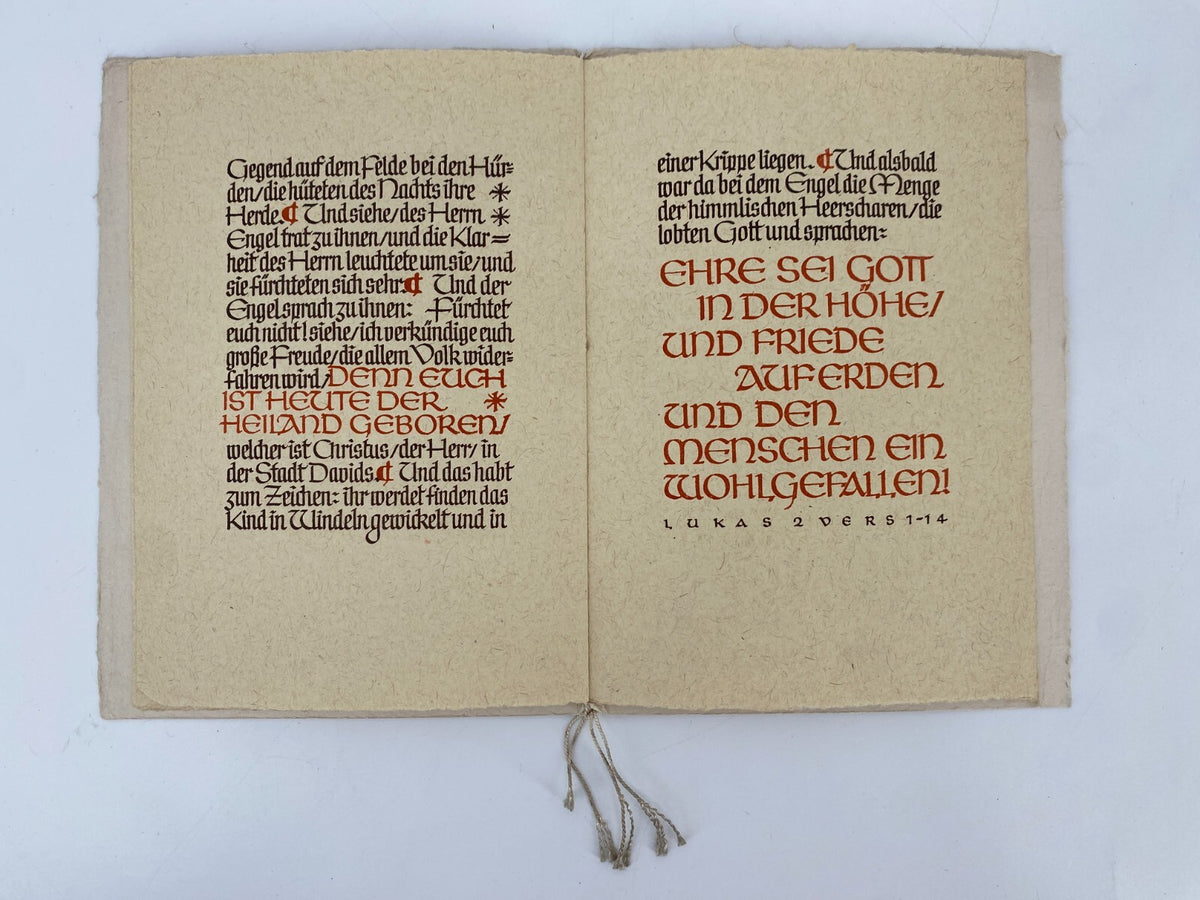 Gegend auf dem Felde bei den Hür=
den/die hüteten des Nachts ihre *
Herde.¶ Und siehe/des Herrn *
Engel trat zu ihnen/und die Klar=
heit des Herrn leuchtete um sie/und
sie fürchteten sich sehr.¶ Und der
Engel sprach zu ihnen: Fürchtet
euch nicht! siehe/ich verkündige euch
große Freude/die allem Volk wider=
fahren wird/DENN EUCH
IST HEUTE DER *
HEILAND GEBOREN/
welcher ist Christus/der Herr/in
der Stadt Davids.¶ Und das habt
zum Zeichen: ihr werdet finden das
Kind in Windeln gewickelt und in
einer Krippe liegen.¶ Und alsbald
war da bei dem Engel die Menge
der himmlischen Heerscharen/die
lobten Gott und sprachen:
EHRE SEI GOTT
IN DER HÖHE/
UND FRIEDE
AUF ERDEN
UND DEN
MENSCHEN EIN
WOHLGEFALLEN!
LUKAS 2 VERS 1-14